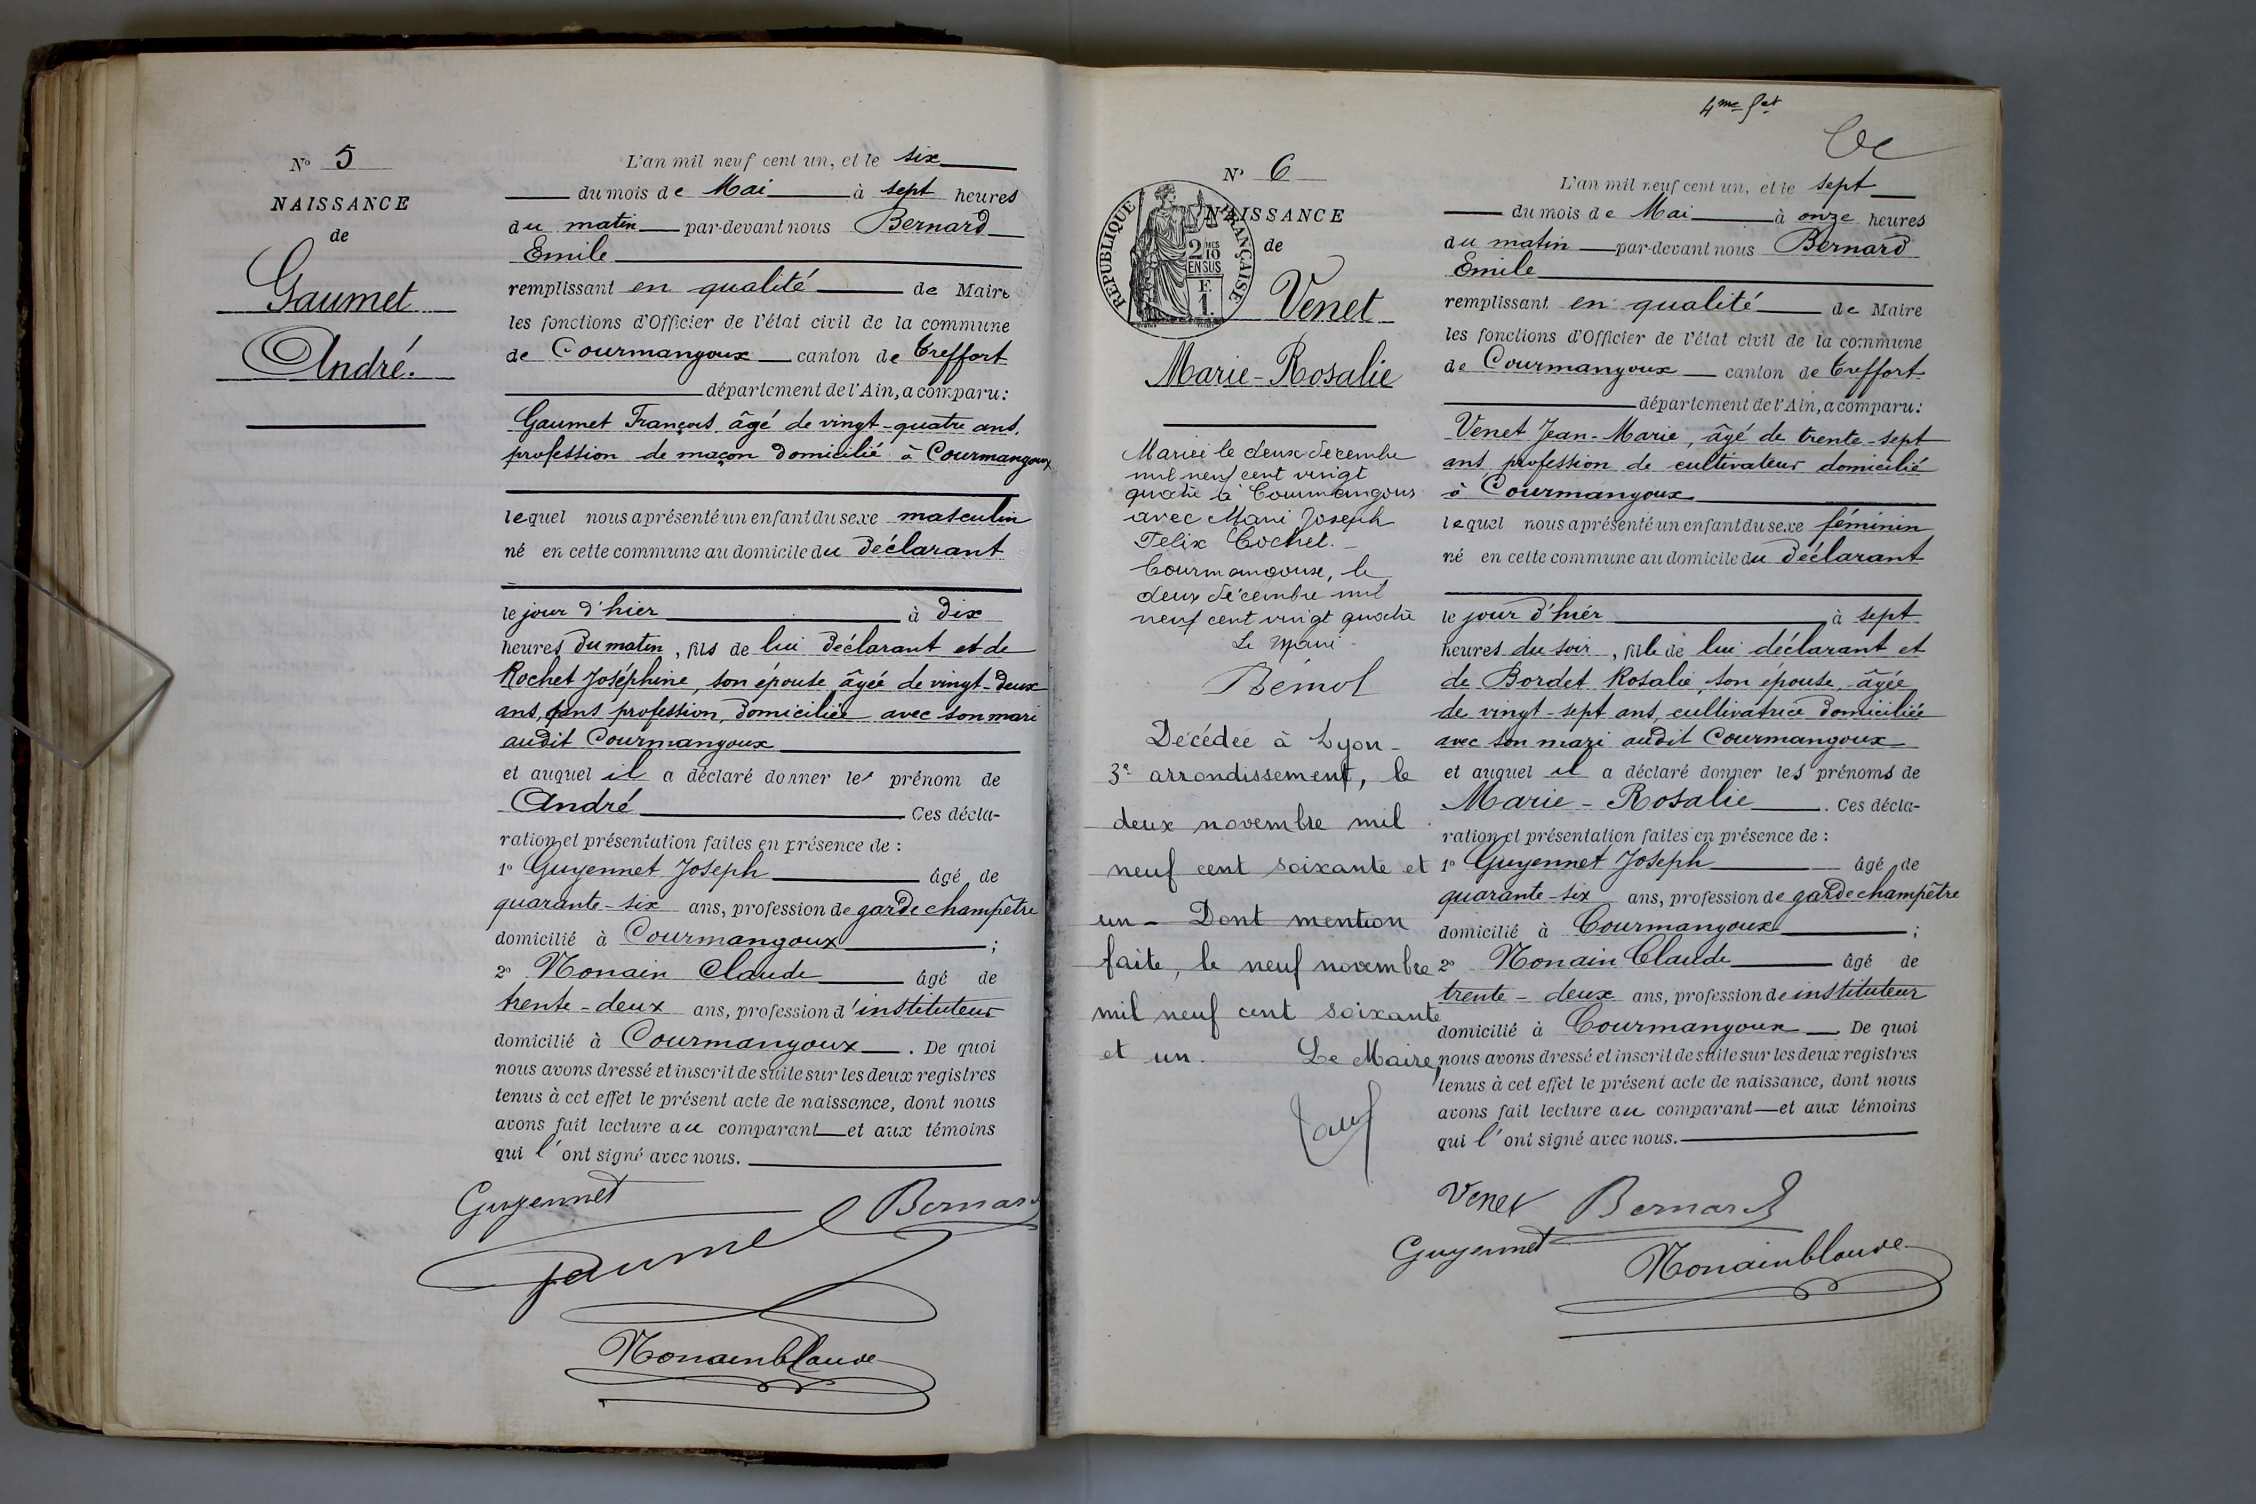 N° 5
NAISSANCE
de
Gaumet
André.
L'an mil neuf cent un, et le six
du mois de Mai à sept heures
du matin par-devant nous Bernard
Emile
remplissant en qualité de Maire
les fonctions d'Officier de l'état civil de la commune
de Courmangoux canton de Treffort
département de l'Ain, a comparu:
Gaumet François âgé de vingt-quatre ans,
profession de maçon domicilié à Courmangoux
lequel nous a présenté un enfant du sexe masculin
né en cette commune au domicile du déclarant
le jour d'hier à dix
heures du matin, fils de lui déclarant et de
Rochet Joséphine, son épouse âgée de vingt-deux
ans, sans profession, domiciliée avec son mari
audit Courmangoux
et auquel il a déclaré donner le prénom de
André Ces décla-
ration et présentation faites en présence de :
1° Guyennet Joseph âgé de
quarante-six ans, profession de garde champêtre
domicilié à Courmangoux ;
2° Monain Claude âgé de
trente-deux ans, profession d'instituteur
domicilié à Courmangoux . De quoi
nous avons dressé et inscrit de suite sur les deux registres
tenus à cet effet le présent acte de naissance, dont nous
avons fait lecture au comparant et aux témoins
qui l'ont signé avec nous.
Guyennet Bernard
Gaumet
Monain Claude
4me
N° 6
RÉPUBLIQUE FRANÇAISE
2 10 EN SUS
F. 1.
NAISSANCE
de
Venet
Marie-Rosalie
Mariée le deux décembre
mil neuf cent vingt
quatre à Courmangoux
avec Marie Joseph
Félix Cochet.
Courmangoux, le
deux décembre mil
neuf cent vingt quatre
Le Maire
Décédée à Lyon -
3e arrondissement, le
deux novembre mil
neuf cent soixante et
un - Dont mention
faite, le neuf novembre
mil neuf cent soixante
et un. Le Maire,
L'an mil neuf cent un, et le sept
du mois de Mai à onze heures
du matin par-devant nous Bernard
Emile
remplissant en qualité de Maire
les fonctions d'Officier de l'état civil de la commune
de Courmangoux canton de Treffort
département de l'Ain, a comparu:
Venet Jean-Marie, âgé de trente-sept
ans profession de cultivateur domicilié
à Courmangoux
lequel nous a présenté un enfant du sexe féminin
né en cette commune au domicile du déclarant
le jour d'hier à sept
heures du soir, fille de lui déclarant et
de Bordet Rosalie, son épouse, âgée
de vingt-sept ans, cultivatrice domiciliée
avec son mari audit Courmangoux
et auquel il a déclaré donner les prénoms de
Marie-Rosalie . Ces décla-
ration et présentation faites en présence de :
1° Guyennet Joseph âgé de
quarante-six ans, profession de garde champêtre
domicilié à Courmangoux ;
2° Monain Claude âgé de
trente-deux ans, profession de instituteur
domicilié à Courmangoux De quoi
nous avons dressé et inscrit de suite sur les deux registres
tenus à cet effet le présent acte de naissance, dont nous
avons fait lecture au comparant et aux témoins
qui l'ont signé avec nous.
Venet Bernard
Guyennet
Monain Claude